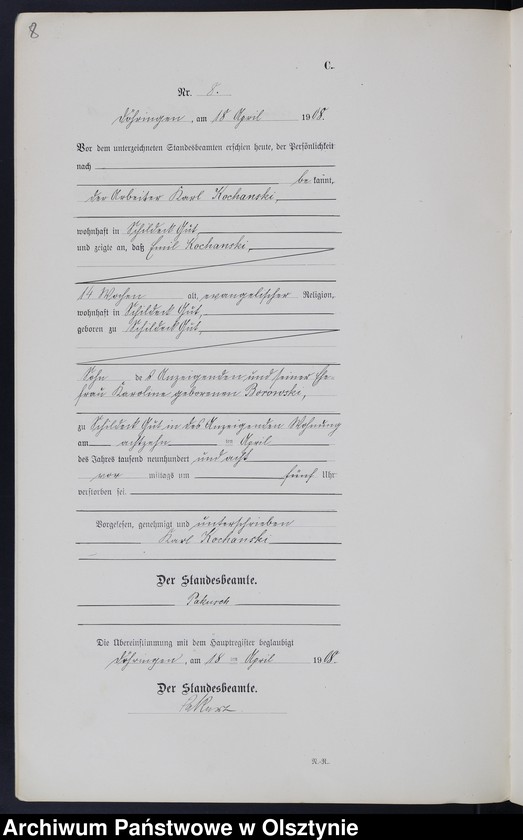 8
C.
Nr. 8.
Döhringen, am 18 April 1908.
Vor dem unterzeichneten Standesbeamten erschien heute, der Persönlichkeit
nach
be kannt,
der Arbeiter Karl Kochanski,
wohnhaft in Schildeck Gut,
und zeigte an, daß Emil Kochanski,
14 Wochen alt, evangelischer Religion,
wohnhaft in Schildeck Gut,
geboren zu Schildeck Gut,
Sohn des Anzeigenden und seiner Ehe-
frau Karoline geborenen Borowski,
zu Schildeck Gut in des Anzeigenden Wohnung
am achtzehn = April
des Jahres tausend neunhundert und acht
vor mittags um fünf Uhr
verstorben sei.
Vorgelesen, genehmigt und unterschrieben
Karl Kochanski
Der Standesbeamte.
Die Übereinstimmung mit dem Hauptregister beglaubigt
Döhringen, am 18 = April 1908.
Der Standesbeamte.
N.-R.
Archiwum Państwowe w Olsztynie